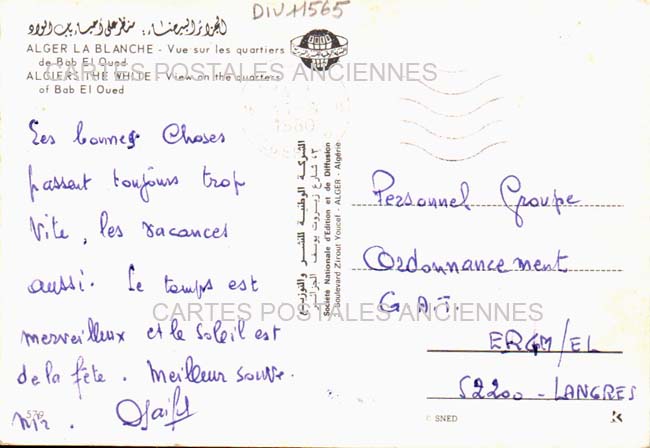 DIV11565
الجزائر البيضاء: منظر على أحياء باب الواد
ALGER LA BLANCHE - Vue sur les quartiers
de Bab El Oued
ALGIERS THE WHITE - View on the quarters
of Bab El Oued
CARTES POSTALES ANCIENNES
Les bonnes Choses
passent toujours trop
Vite, les vacances
aussi. Le temps est
merveilleux et le Soleil est
de la fête. Meilleur Souve-
nir.
الشركة الوطنية للنشر والتوزيع
3، شارع زيروت يوسف الجزائر
Société Nationale d'Edition et de Diffusion
boulevard Zirout Youcef - ALGER - Algérie
Personnel Groupe
Ordonnancement
G.A.T.
CARTES POSTALES ANCIENNES
ERGM/EL
52200 - LANGRES
SNED